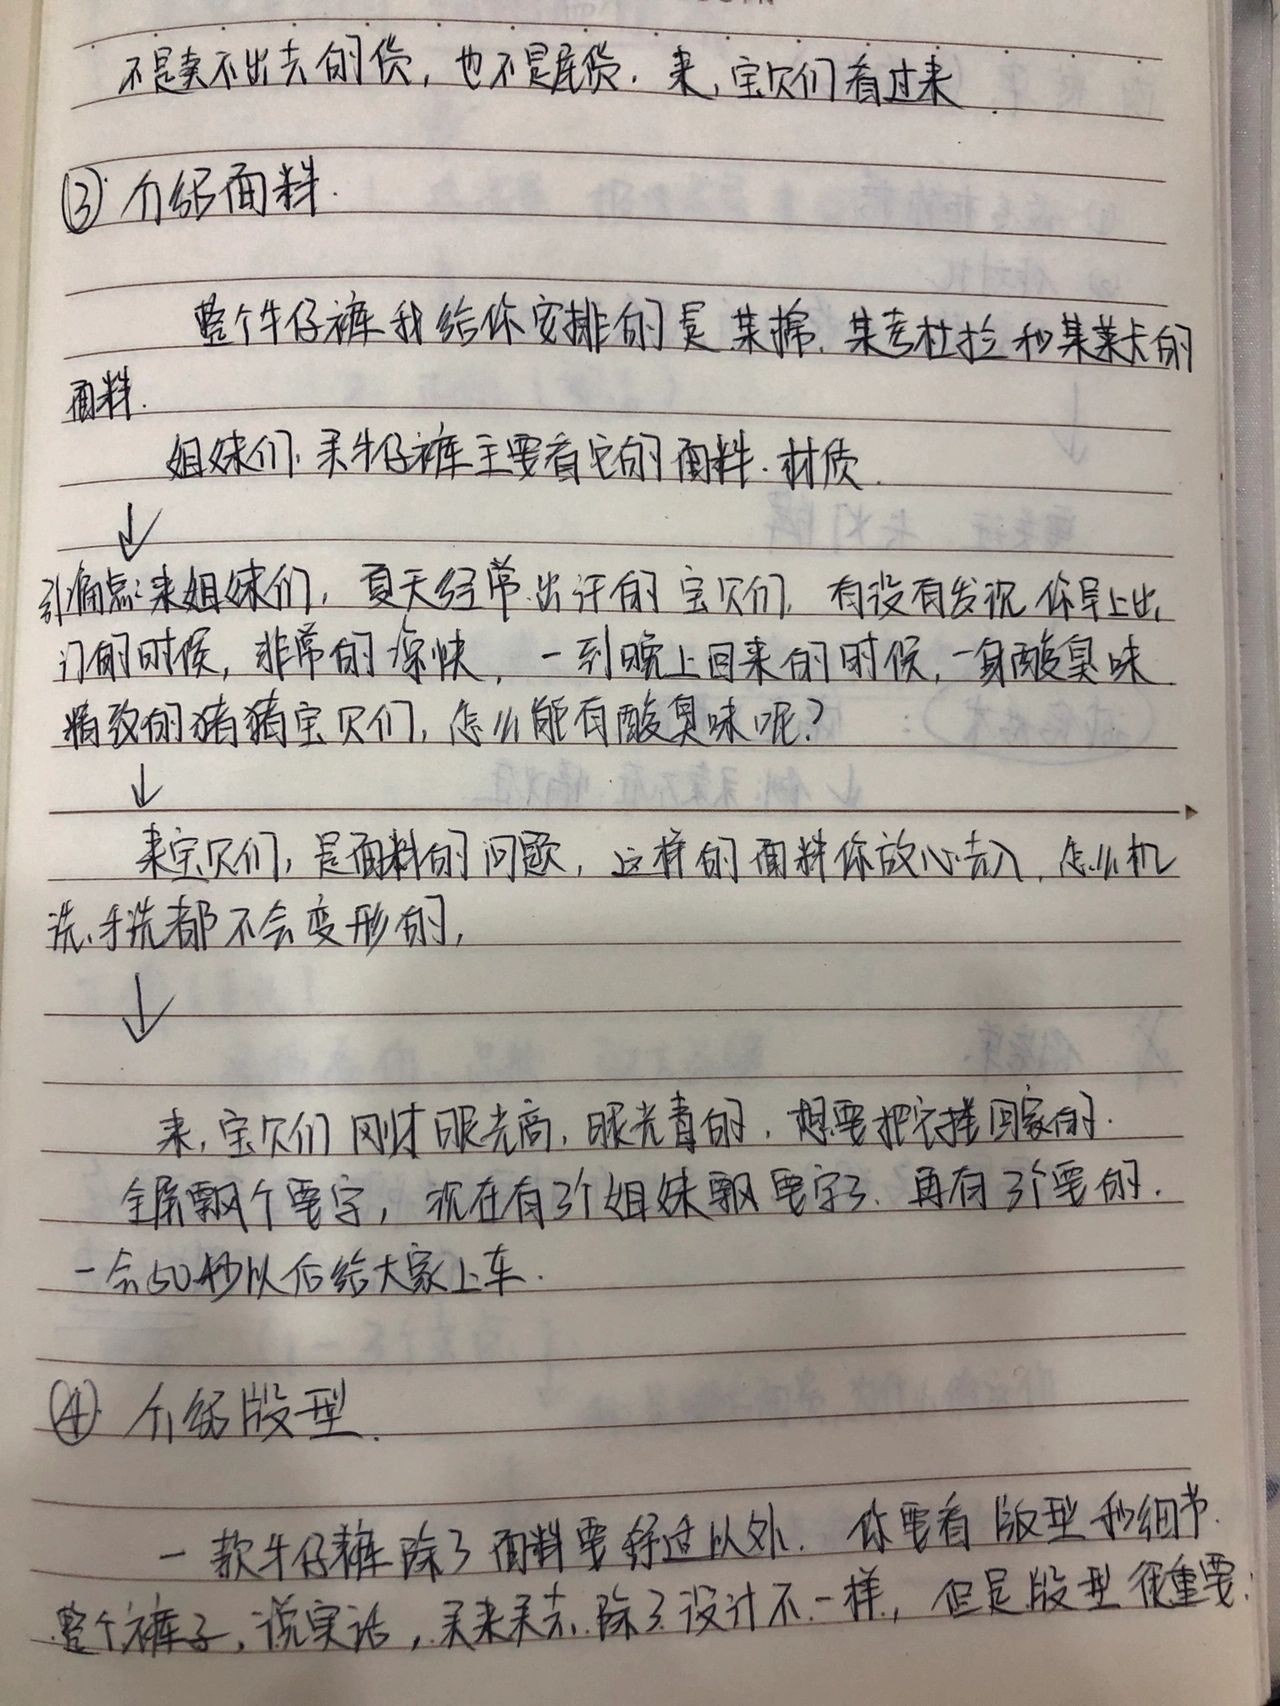 不是卖不出去的货，也不是尾货．来，宝贝们看过来
③ 介绍面料．
整个牛仔裤我给你安排的是某棉．某考杜拉和某莱卡的
面料．
姐妹们．买牛仔裤主要看它的面料．材质．
↓
引痛点：来姐妹们，夏天经常出汗的宝贝们，有没有发现你早上出
门的时候，非常的凉快，一到晚上回来的时候，一身酸臭味
精致的猪猪宝贝们，怎么能有酸臭味呢？
↓
来宝贝们，是面料的问题，这样的面料你放心去入，怎么机
洗、手洗都不会变形的，
↓
来，宝贝们刚才眼光高，眼光毒的，想要把它搂回家的．
全屏飘个要字，现在有3个姐妹飘要字了．再有3个要的．
一会50秒以后给大家上车．
④ 介绍版型．
一款牛仔裤除了面料要舒适以外．你要看版型和细节．
整个裤子，说实话，买来买去，除了设计不一样，但是版型很重要；